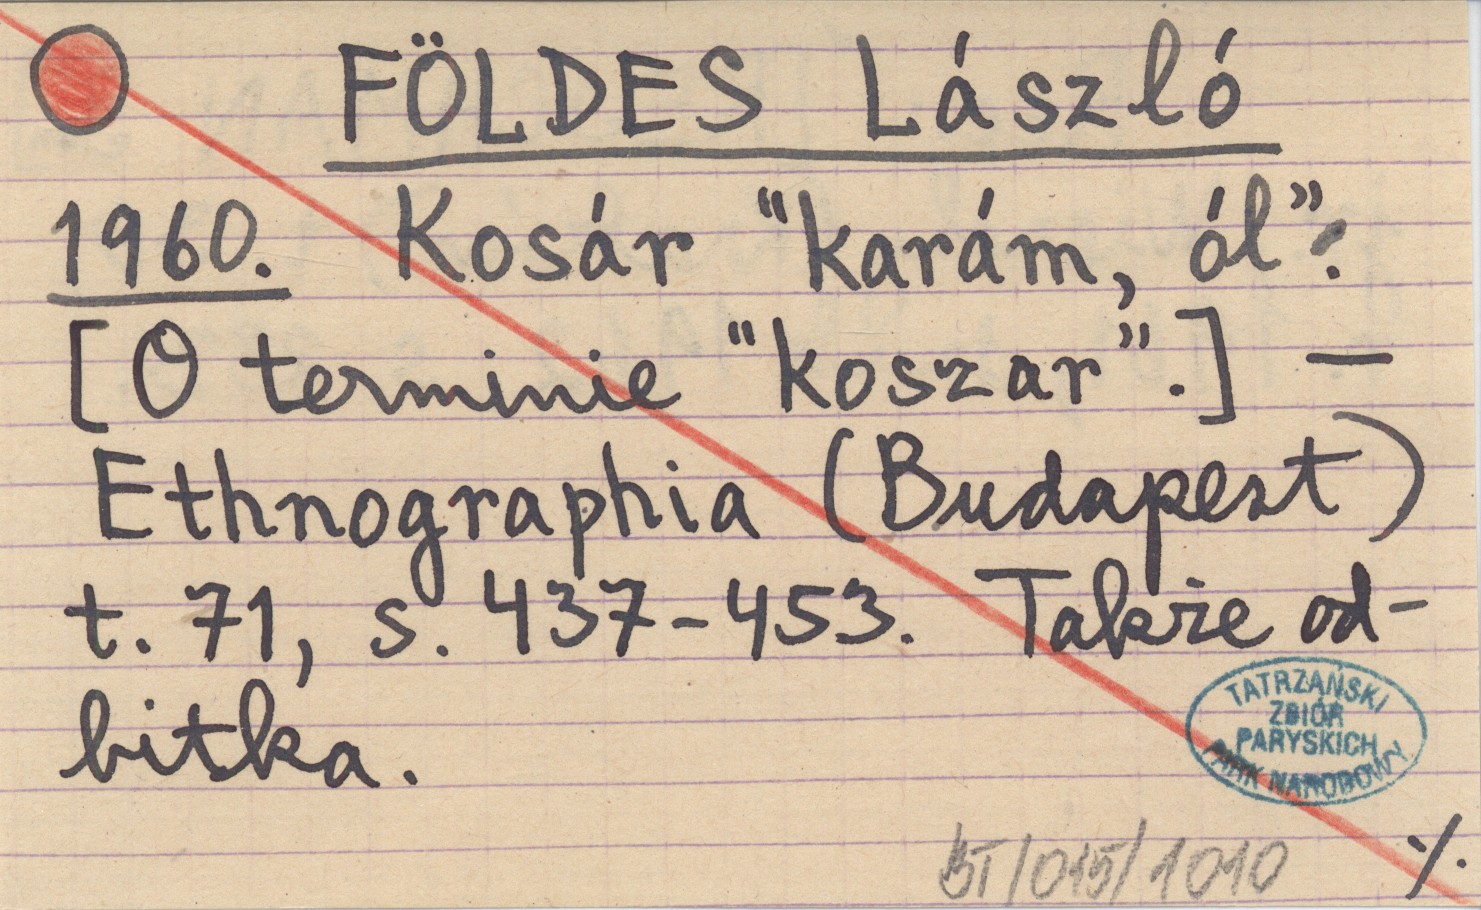 FÖLDES László
1960. Kosár “karám, ól”.
[O terminie “koszar”.] —
Ethnographia (Budapest)
t. 71, s. 437-453. Także od-
bitka.
TATRZAŃSKI
ZBIÓR
PARYSKICH
PARK NARODOWY
BT/015/1010
·/.